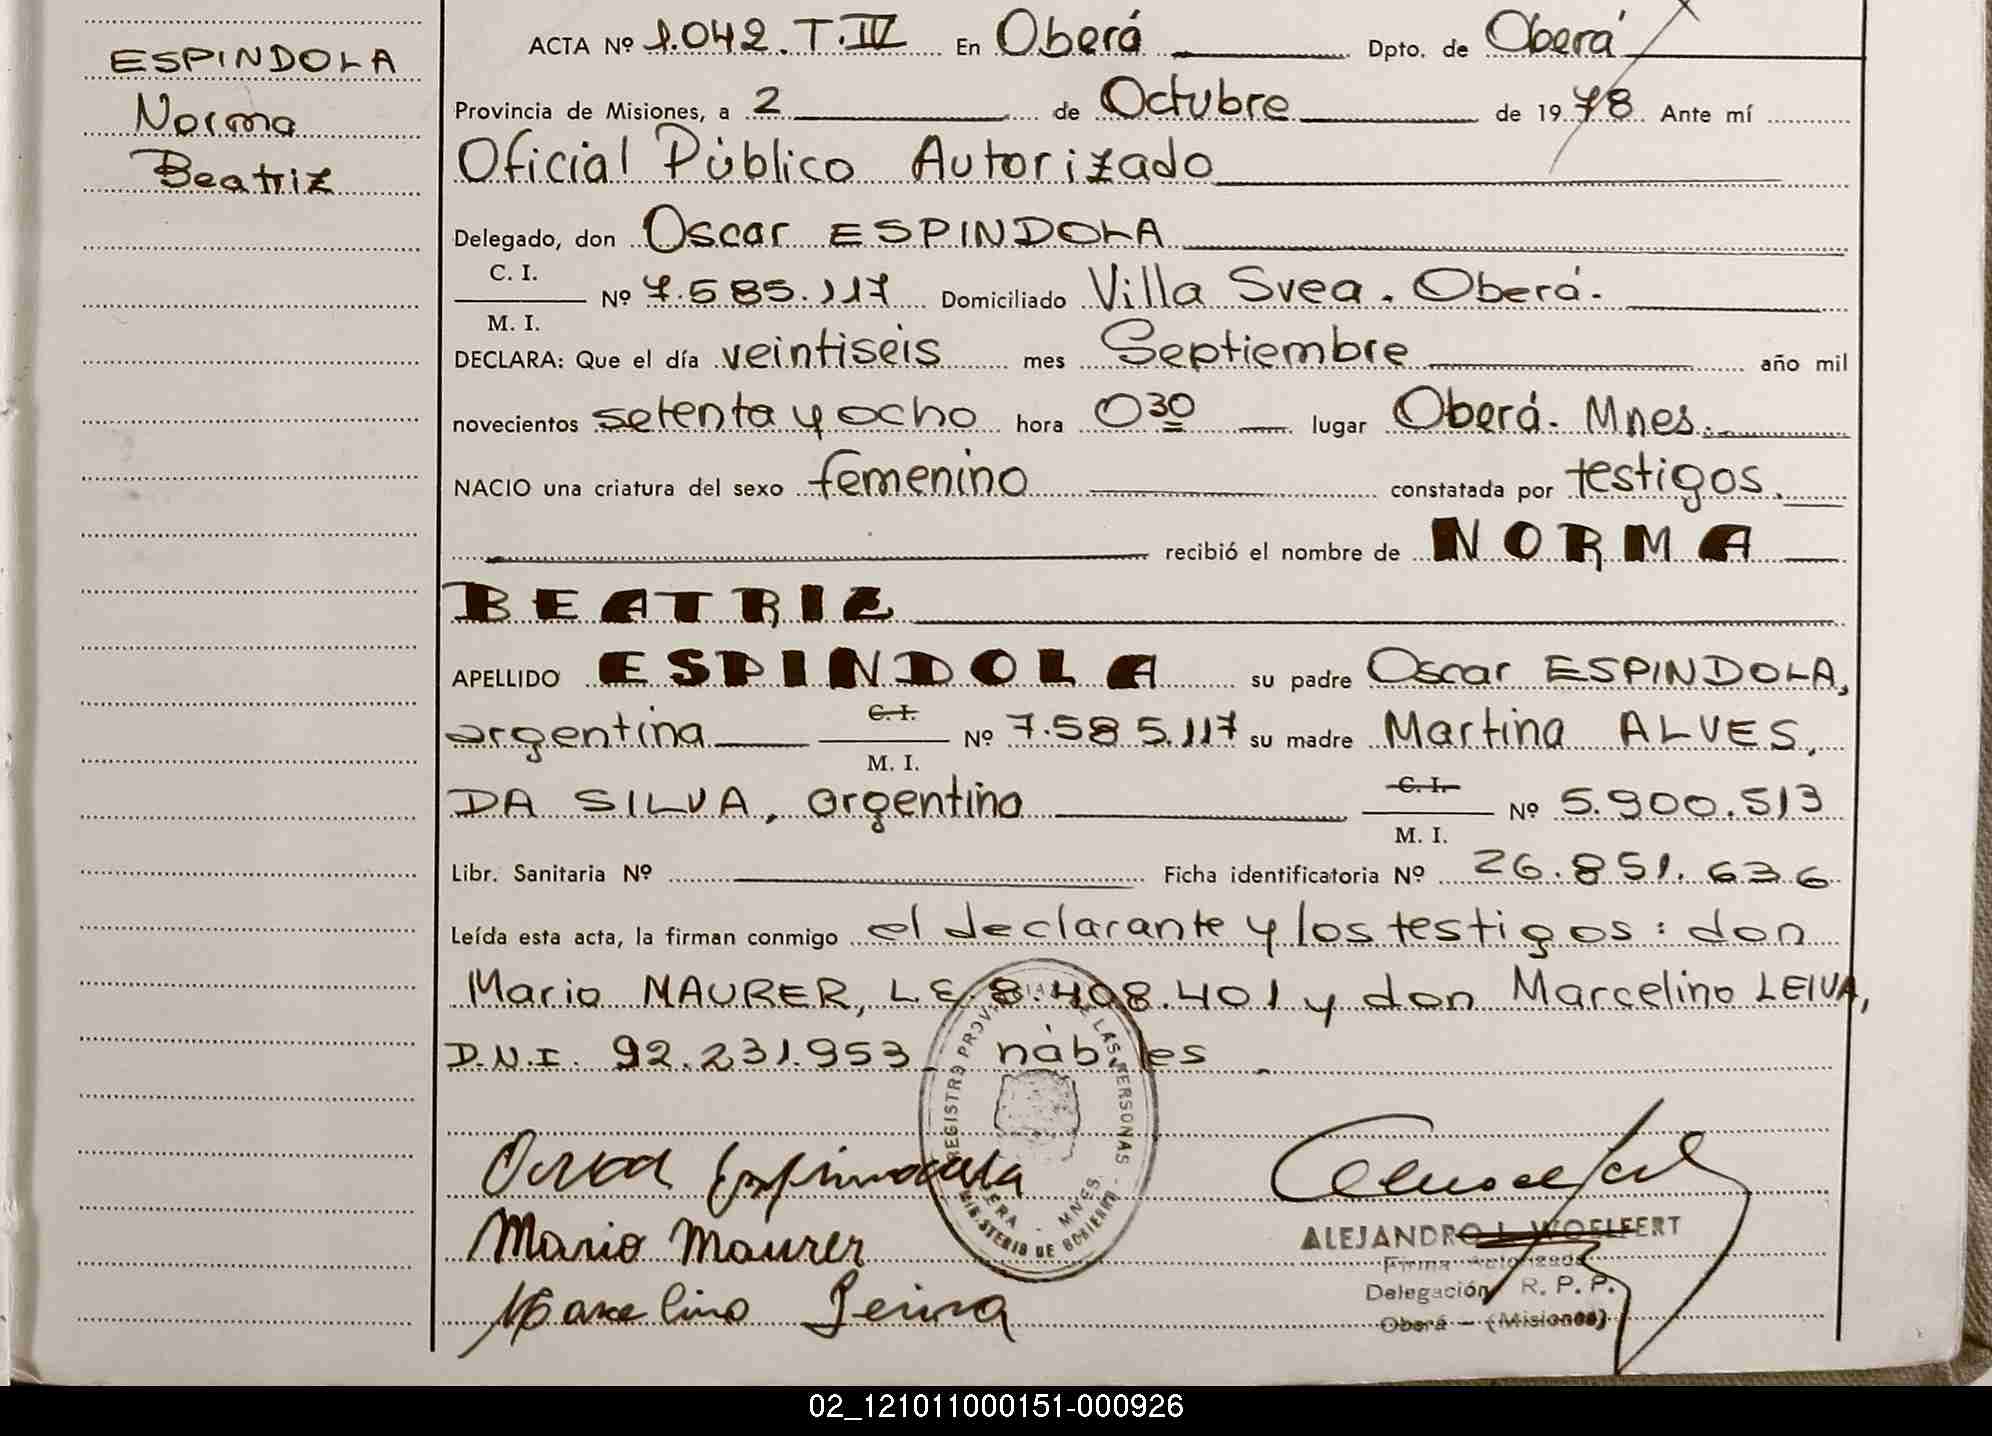 ESPINDOLA
Norma
Beatriz
ACTA Nº 1.042. T. IV En Oberá Dpto. de Oberá
Provincia de Misiones, a 2 de Octubre de 1978 Ante mí
Oficial Público Autorizado
Delegado, don Oscar ESPINDOLA
C. I.
Nº 7.585.117 Domiciliado Villa Svea. Oberá.
M. I.
DECLARA: Que el día veintiseis mes Septiembre año mil
novecientos setenta y ocho hora 0 30 lugar Oberá. Mnes.
NACIO una criatura del sexo femenino constatada por testigos.
recibió el nombre de NORMA
BEATRIZ
APELLIDO ESPINDOLA su padre Oscar ESPINDOLA,
argentina C. I. Nº 7.585.117 su madre Martina ALVES,
M. I.
DA SILVA, argentina C. I. Nº 5.900.513
M. I.
Libr. Sanitaria Nº Ficha identificatoria Nº 26.851.636
Leída esta acta, la firman conmigo el declarante y los testigos: don
Mario MAURER, L.E. 8.408.401 y don Marcelino LEIVA,
D.N.I. 92.231.953 hábiles
REGISTRO PROVINCIAL DE LAS PERSONAS
MNES.
MINISTERIO DE GOBIERNO
Oscar Espindola
Mario Maurer
Marcelino Leiva
ALEJANDRO L. WOELFERT
Firma Autorizada
Delegación R. P. P.
Oberá - (Misiones)
02_121011000151-000926